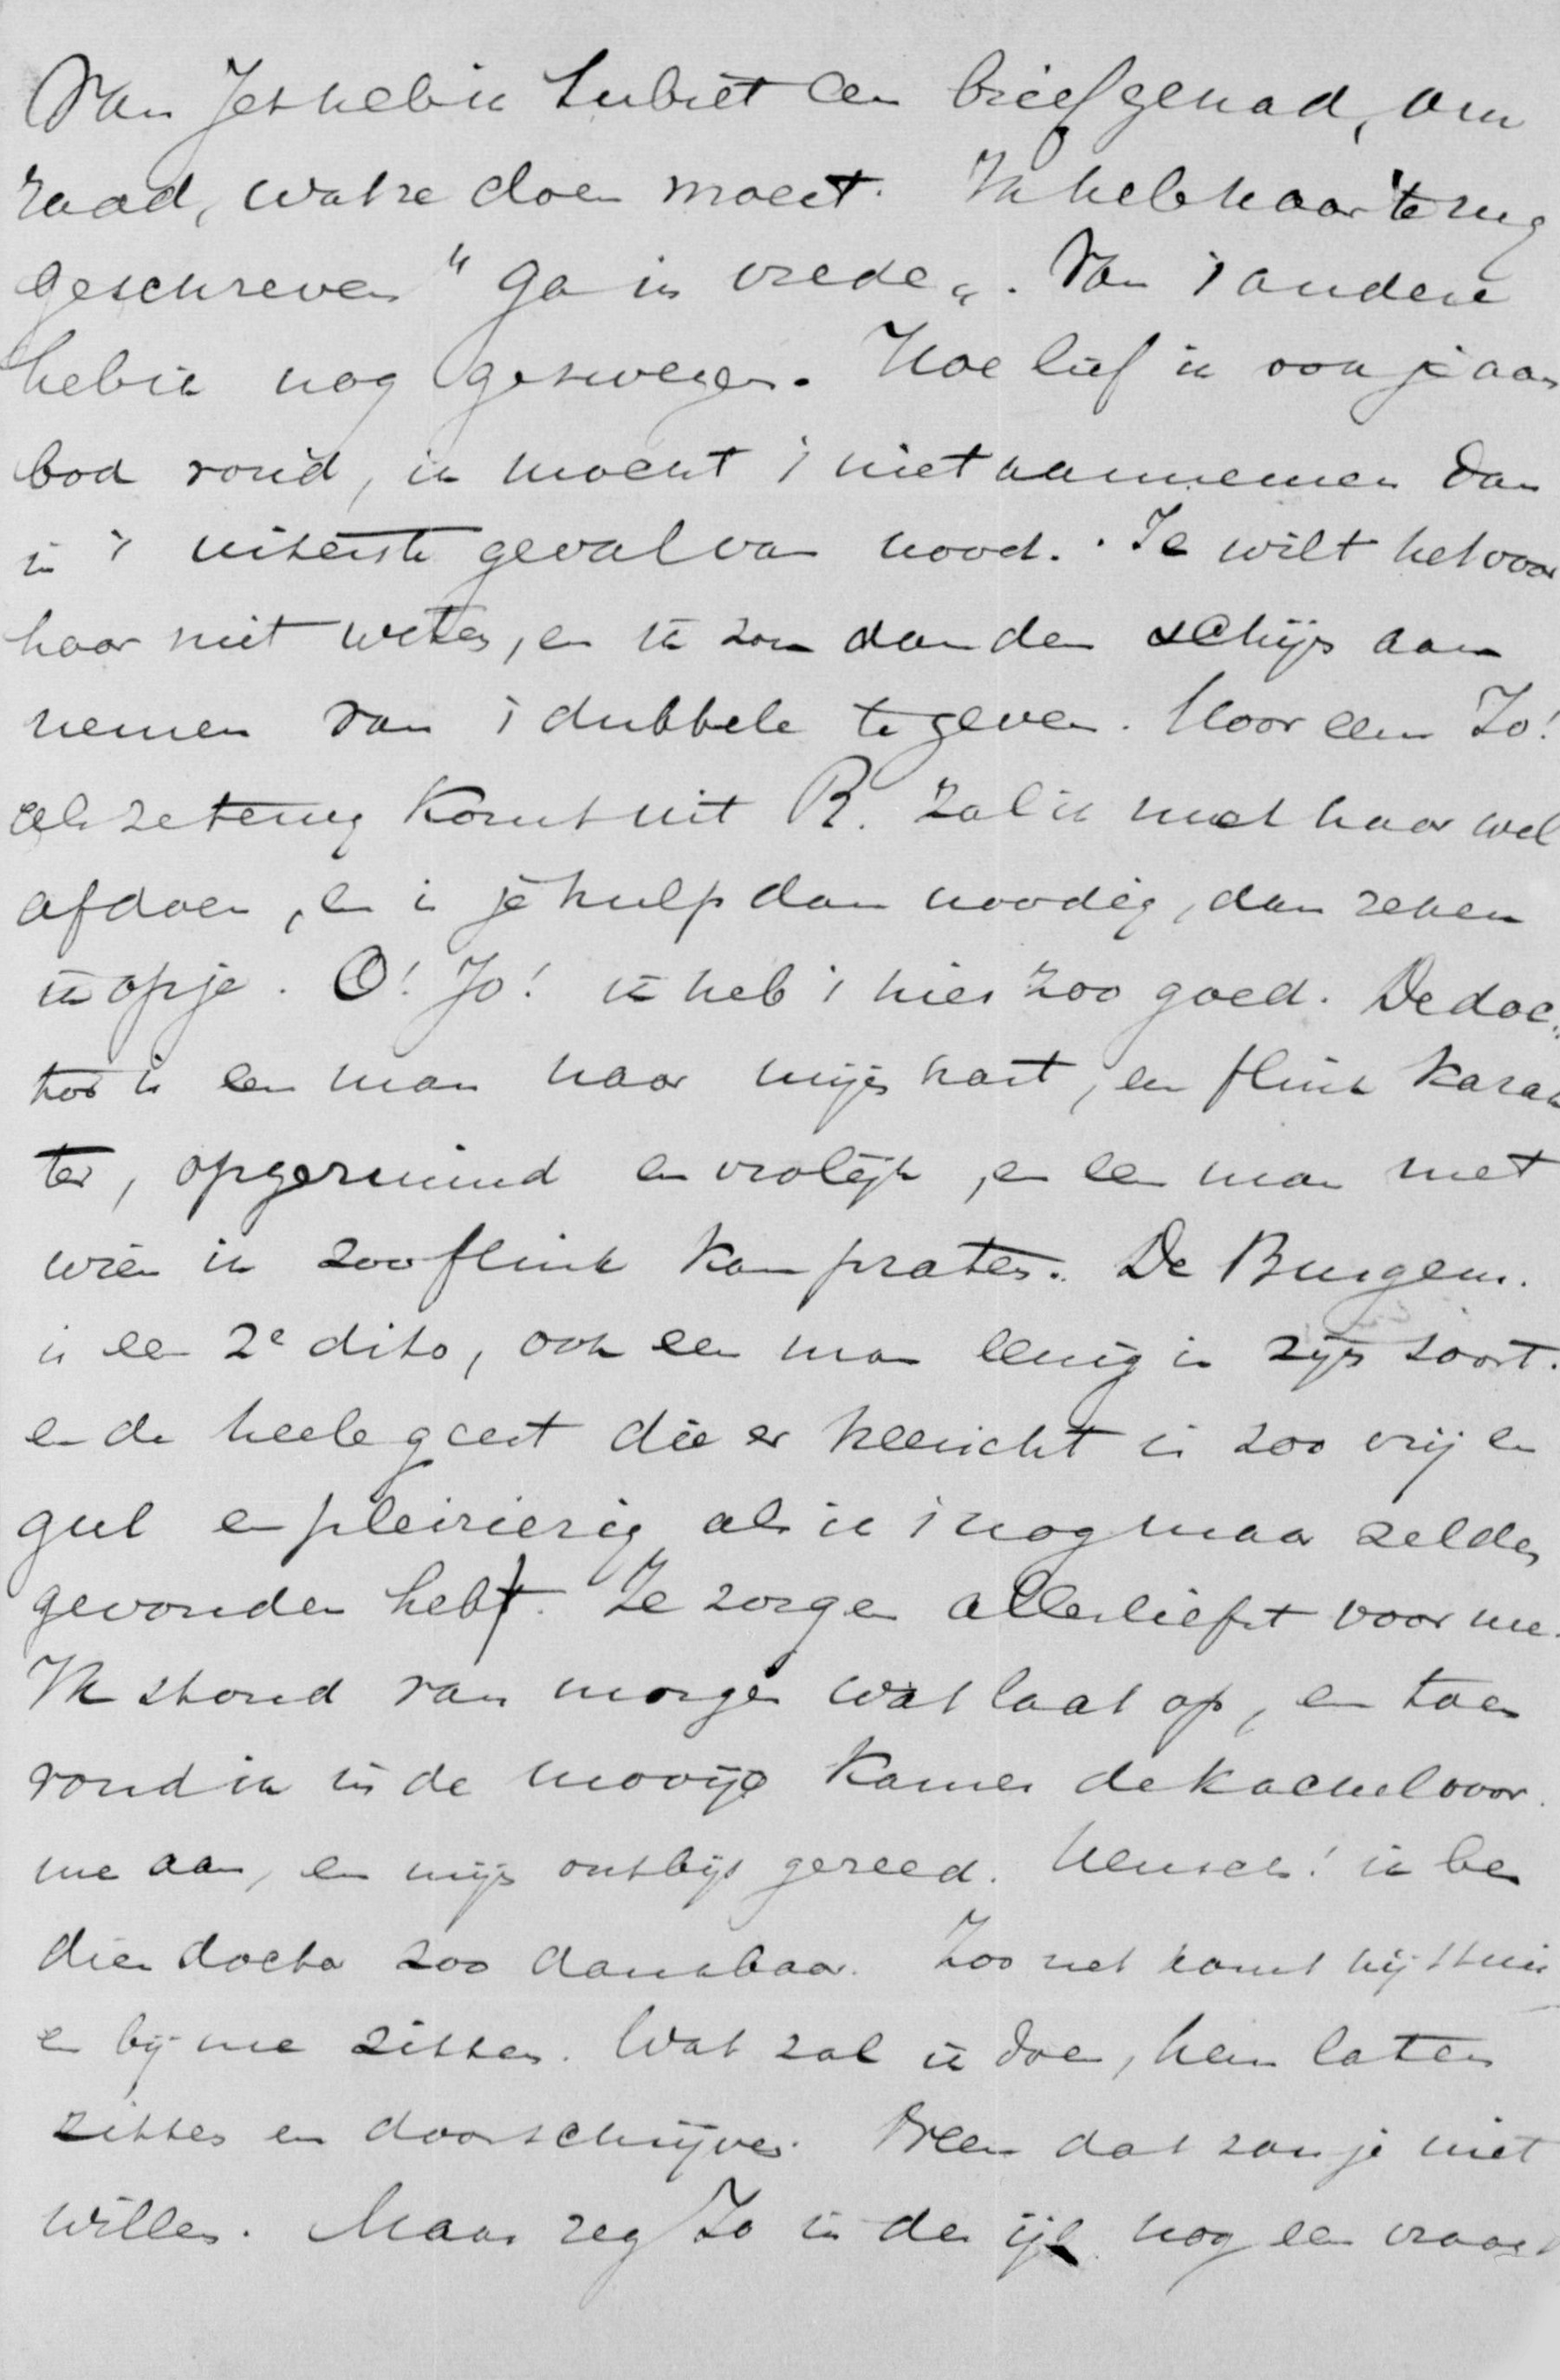 Van Jet heb ik subiet een brief gehad, om
raad, wat ze doen moest. Ik heb haar terug
geschreven "ga in vrede". Van 't andere
heb ik nog gezwegen. Hoe lief ik ook je aan
bod vond, ik mocht 't niet aannemen dan
in 't uiterste geval van nood. Je wilt het voor
haar niet weten, en ik zou dan den schijn aan
nemen van 't dubbele te geven. Hoor een Jo!
als ze terug komt uit R. zal ik met haar wel
afdoen, en is je hulp dan noodig, dan reken
ik op je. O! Jo! ik heb 't hier zoo goed. De doc
tor is een man naar mijn hart, een flink karak
ter, opgeruimd en vrolijk, en een man met
wien ik zoo flink kan praten. De Burgem.
is een 2e dito, ook een man eenig in zijn soort.
en de heele geest die er heerscht is zoo vrij en
gul en pleizierig als ik 't nog maar zelden
gevonden heb. Ze zorgen allerliefst voor me.
Ik stond van morgen wat laat op, en toen
vond ik in de mooije kamer de kachel voor
me aan, en mijn ontbijt gereed. Mensch! ik ben
dien doctor zoo dankbaar. Zoo net komt hij thuis
en bij me zitten. Wat zal ik doen, hem laten
zitten en doorschrijven. Neen dat zou je niet
willen. Maar zeg Jo in der ijl nog een vraag